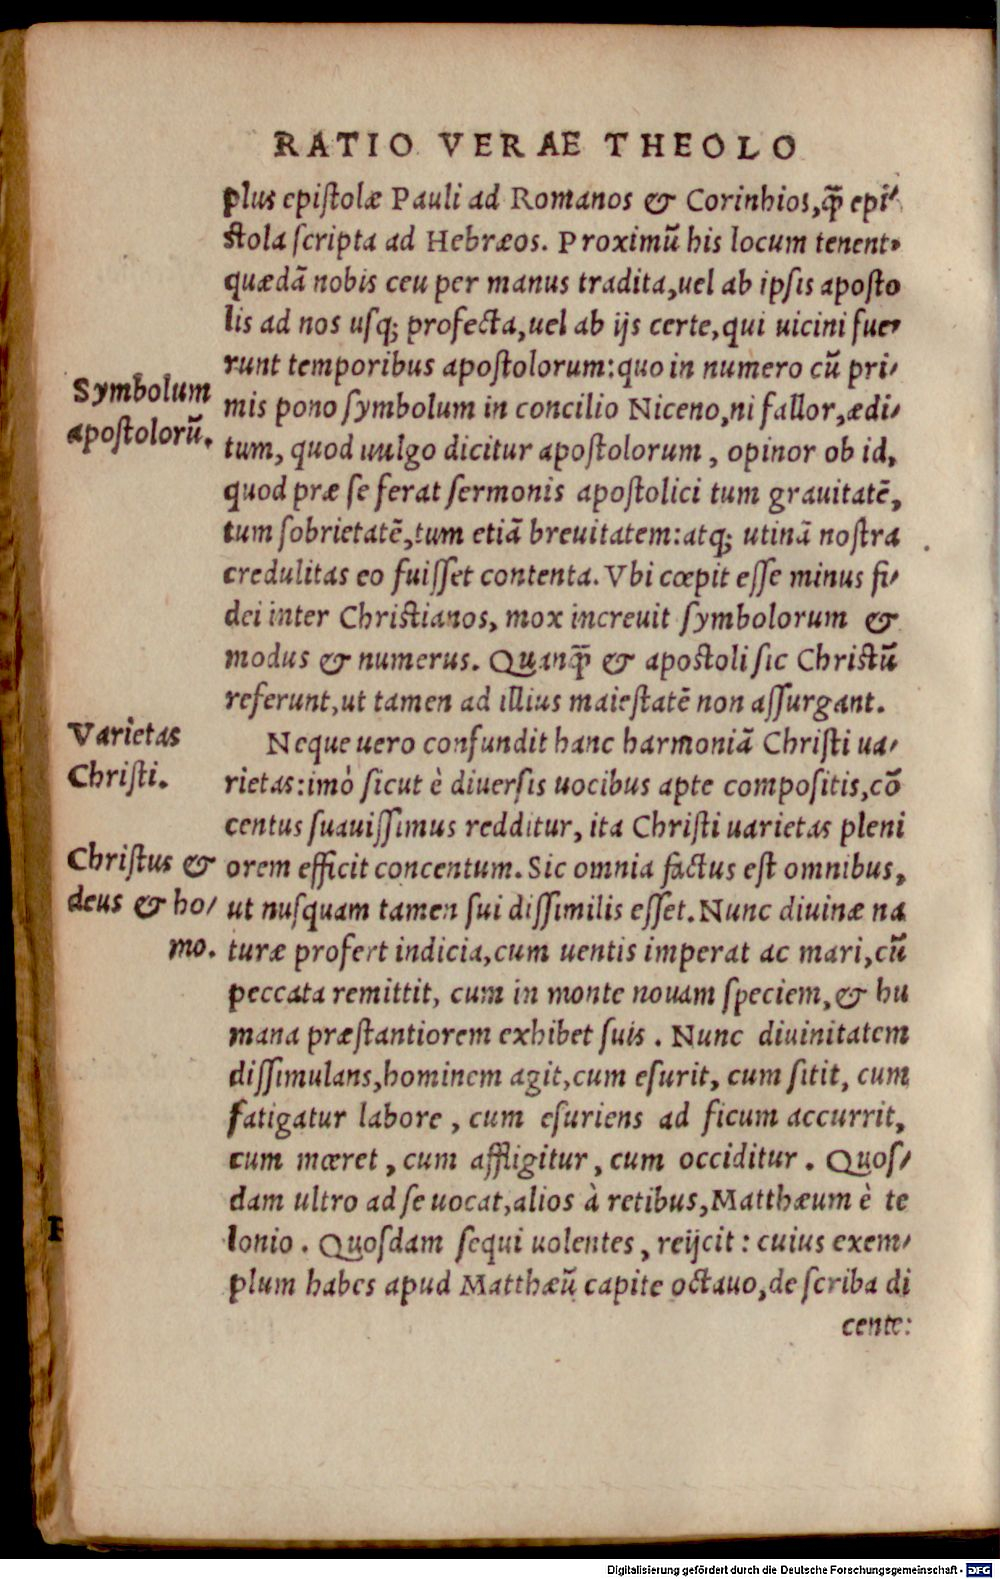 RATIO VERAE THEOLO
plus epistolæ Pauli ad Romanos & Corinhios, q̃ epi⸗
stola scripta ad Hebræos. Proximũ his locum tenent⸗
quædã nobis ceu per manus tradita, uel ab ipsis aposto
lis ad nos usq; profecta, uel ab ijs certe, qui uicini fue⸗
runt temporibus apostolorum: quo in numero cũ pri⸗
Symbolum
apostolorũ.
mis pono symbolum in concilio Niceno, ni fallor, ædi⸗
tum, quod uulgo dicitur apostolorum, opinor ob id,
quod præ se ferat sermonis apostolici tum grauitatẽ,
tum sobrietatẽ, tum etiã breuitatem: atq; utinã nostra
credulitas eo fuisset contenta. Vbi cœpit esse minus fi⸗
dei inter Christianos, mox increuit symbolorum &
modus & numerus. Quanq̃ & apostoli sic Christũ
referunt, ut tamen ad illius maiestatẽ non assurgant.
Varietas
Christi.
Neque uero confundit hanc harmoniã Christi ua⸗
rietas: imò sicut è diuersis uocibus apte compositis, cõ
centus suauissimus redditur, ita Christi uarietas pleni
Christus &
deus & ho⸗
mo.
orem efficit concentum. Sic omnia factus est omnibus,
ut nusquam tamen sui dissimilis esset. Nunc diuinæ na
turæ profert indicia, cum uentis imperat ac mari, cũ
peccata remittit, cum in monte nouam speciem, & hu
mana præstantiorem exhibet suis. Nunc diuinitatem
dissimulans, hominem agit, cum esurit, cum sitit, cum
fatigatur labore, cum esuriens ad ficum accurrit,
cum mœret, cum affligitur, cum occiditur. Quos⸗
dam ultro ad se uocat, alios à retibus, Matthæum è te
lonio. Quosdam sequi uolentes, reijcit: cuius exem⸗
plum habes apud Matthæũ capite octauo, de scriba di
cente:
Digitalisierung gefördert durch die Deutsche Forschungsgemeinschaft - DFG